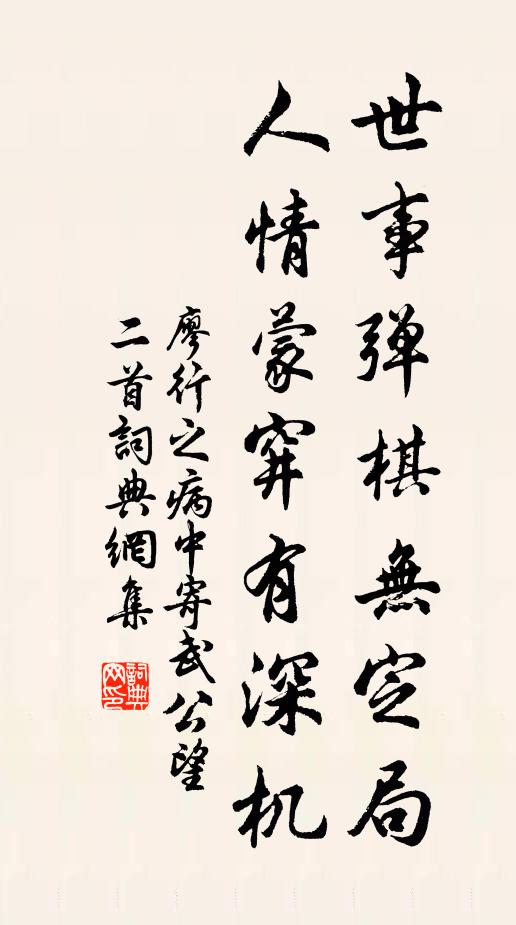 世事弹棋無定局
人情蒙穽有深机
廖行之病中寄武公望
二首詞典網集
詞典网印